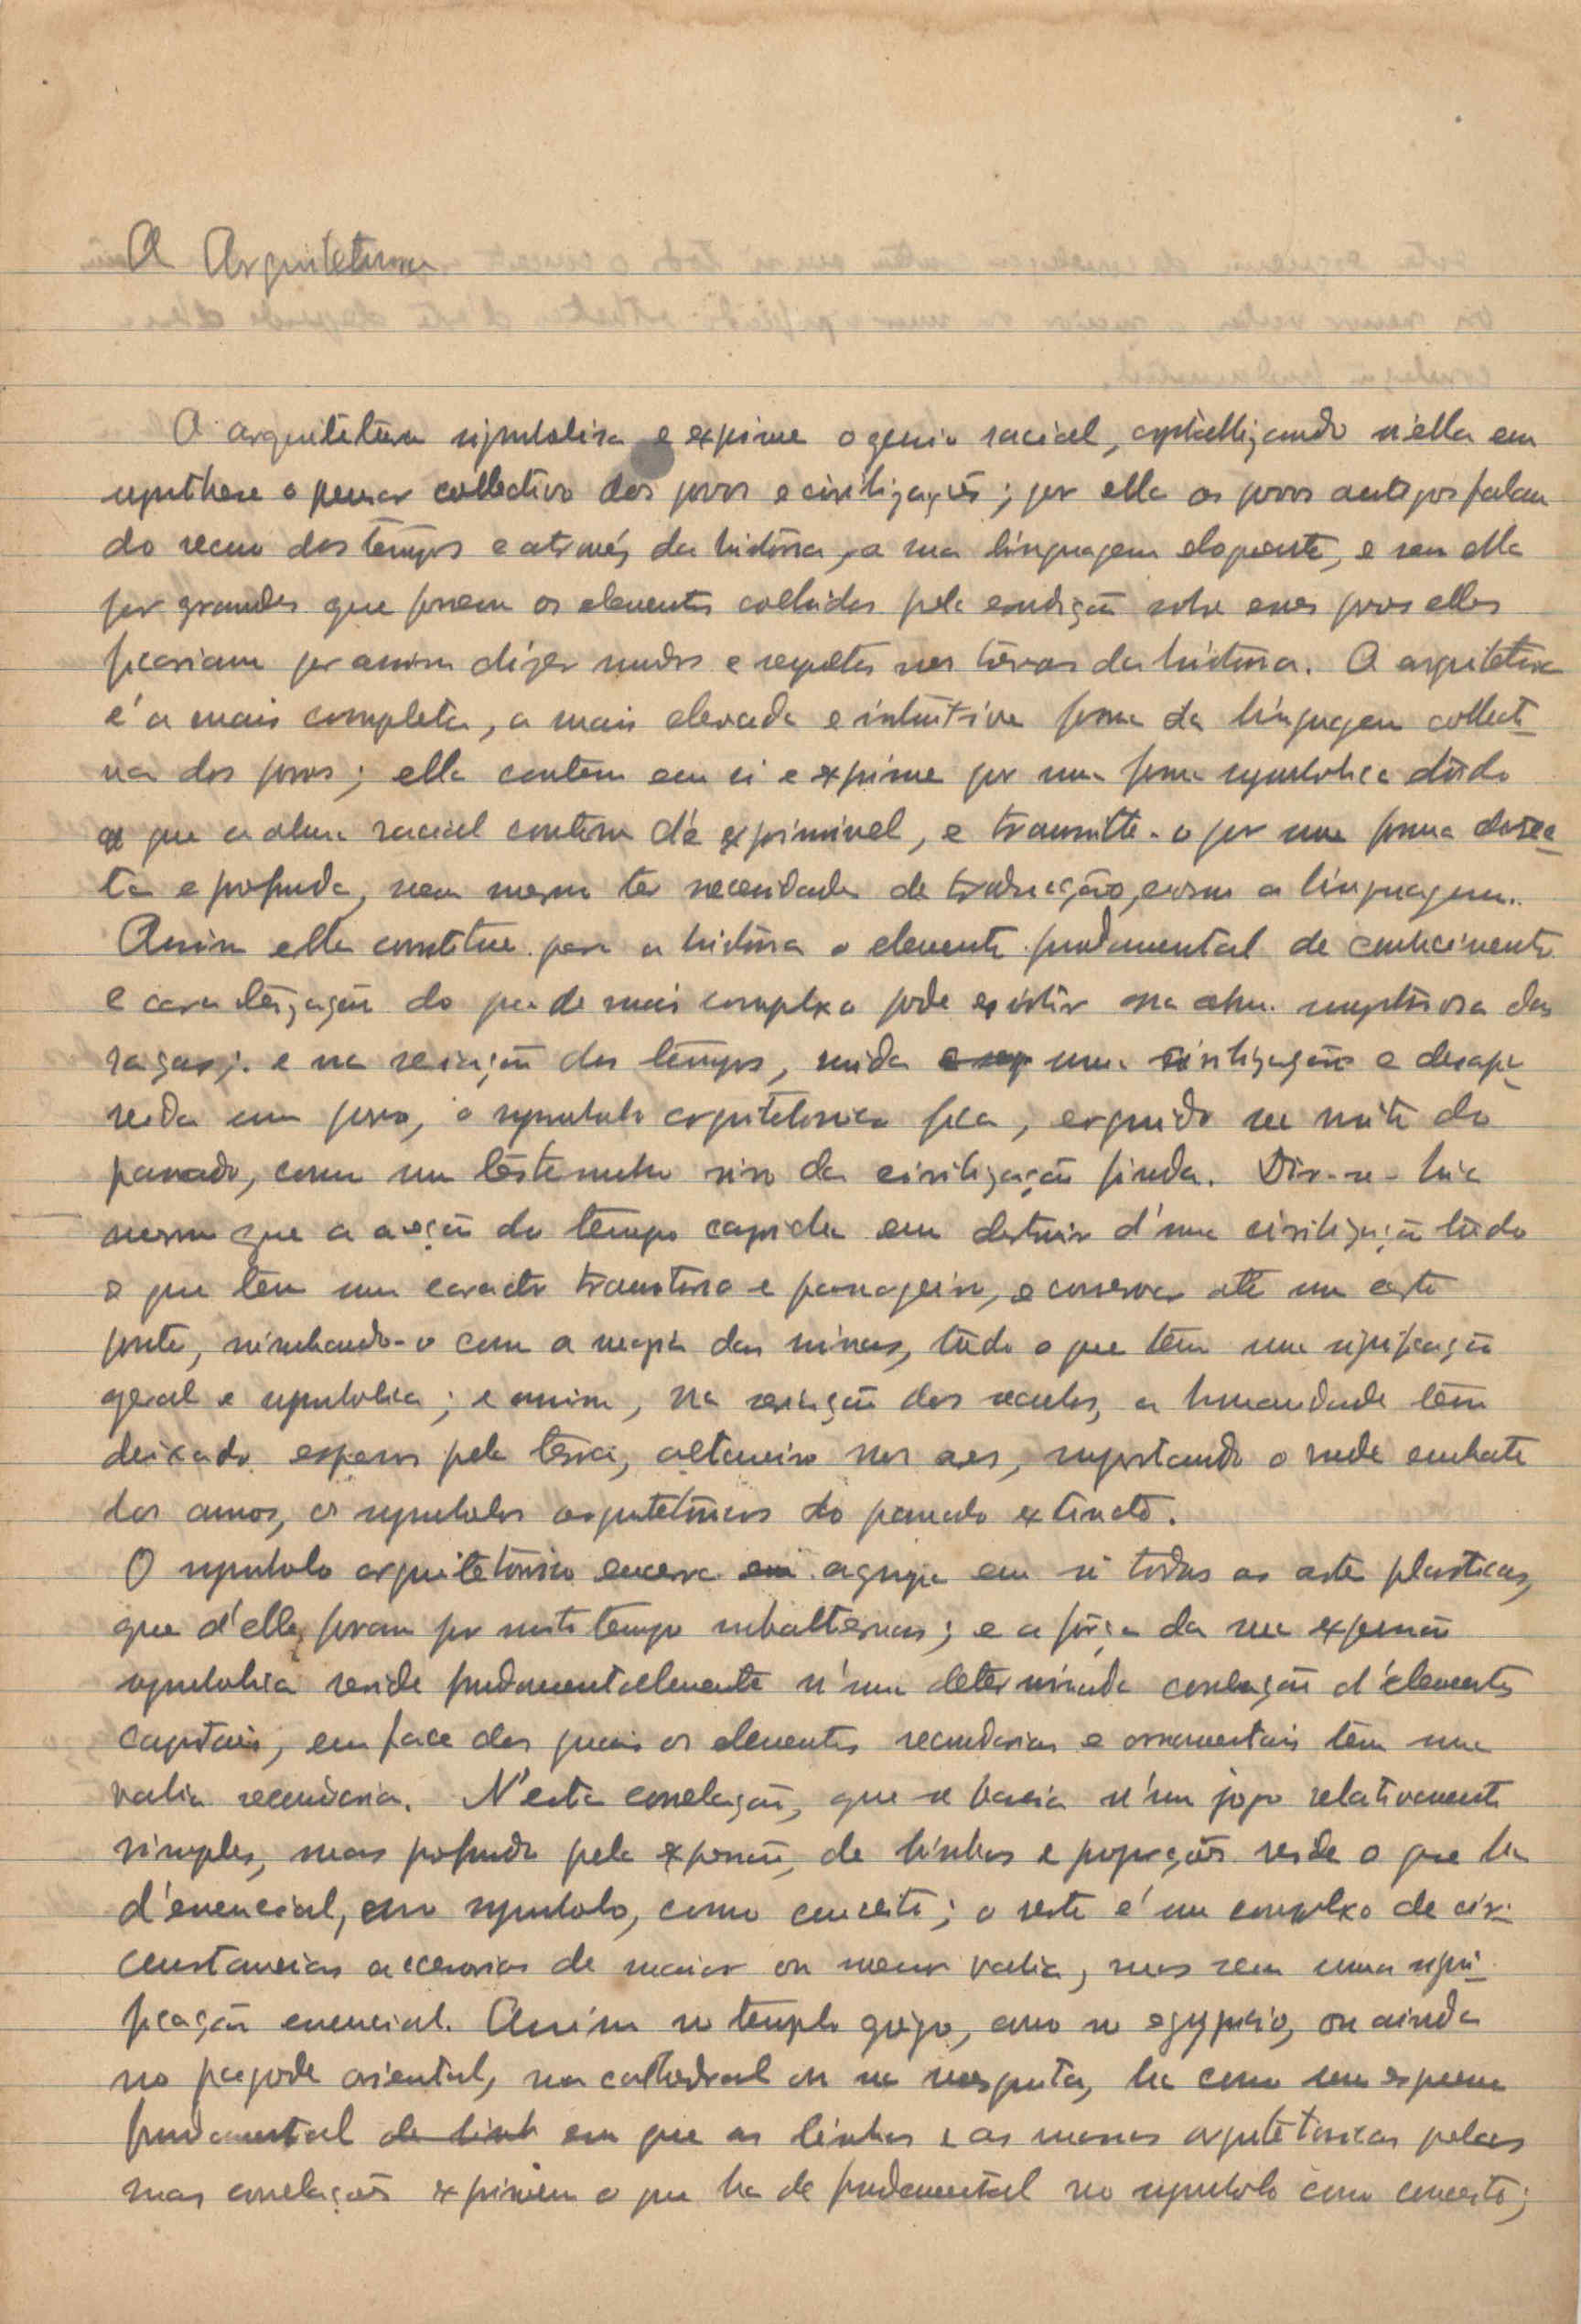 A Arquitetura
A arquitetura symbolisa e exprime o genio racial, crystallizando n'ella em
synthese o pensar collectivo dos povos e civilizações; por ella os povos antigos falam
do recuo dos tempos e através da história, a sua linguagem eloquente, e sem ella
por grandes que fossem os elementos colhidos pela erudição sobre esses povos elles
ficariam por assim dizer mudos e sepultos nas trevas da história. A arquitetura
é a mais completa, a mais elevada e intuitiva forma da linguagem collecti-
va dos povos; ella contem em si e exprime por uma forma symbolica tudo
o que a alma racial contem de exprimivel, e transmitte-o por uma forma direc-
ta e profunda, sem mesmo ter necessidade de traducção, como a linguagem.
Assim ella constitue para a história o elemento fundamental de conhecimento
e caracterização do que de mais complexo pode existir na alma sumptuosa das
raças; e na sucessão dos tempos, finda uma civilização e desapa-
recida um povo, o symbolo arquitetonico fica, erguido na noite do
passado, como um testemunho vivo da civilização finda. Dir-se-hia
mesmo que a acção do tempo capricha em destruir d'uma civilização tudo
o que tem um caracter transitorio e passageiro, e conservar até um certo
ponto, nimbando-o com a magia das ruinas, tudo o que tem uma significação
geral e symbolica; e assim, na sucessão dos seculos, a humanidade tem
deixado esparsos pela terra, altaneiros nos ares, suportando o rude embate
dos annos, os symbolos arquitetónicos do passado extincto.
O symbolo arquitetónico encerra agrupa em si todas as artes plasticas,
que d'ella foram por muito tempo subalternas; e a força da sua expressão
symbolica reside fundamentalmente n'uma determinada correlação d'elementos
capitais, em face dos quais os elementos secundarios e ornamentais têm uma
valia secundaria. N'esta correlação, que se baseia n'um jogo relativamente
simples, mas profundo pela expressão, de linhas e proporções reside o que ha
d'essencial, como symbolo, como conceito; o resto é um complexo de cir-
cunstancias accessorias de maior ou menor valia, mas sem uma signi-
ficação essencial. Assim no templo grego, como no egypcio, ou ainda
no pagode oriental, na cathedral ou na mesquita, ha como um esquema
fundamental em que as linhas e as massas arquitetonicas pelas
suas correlações exprimem o que ha de fundamental no symbolo como conceito;